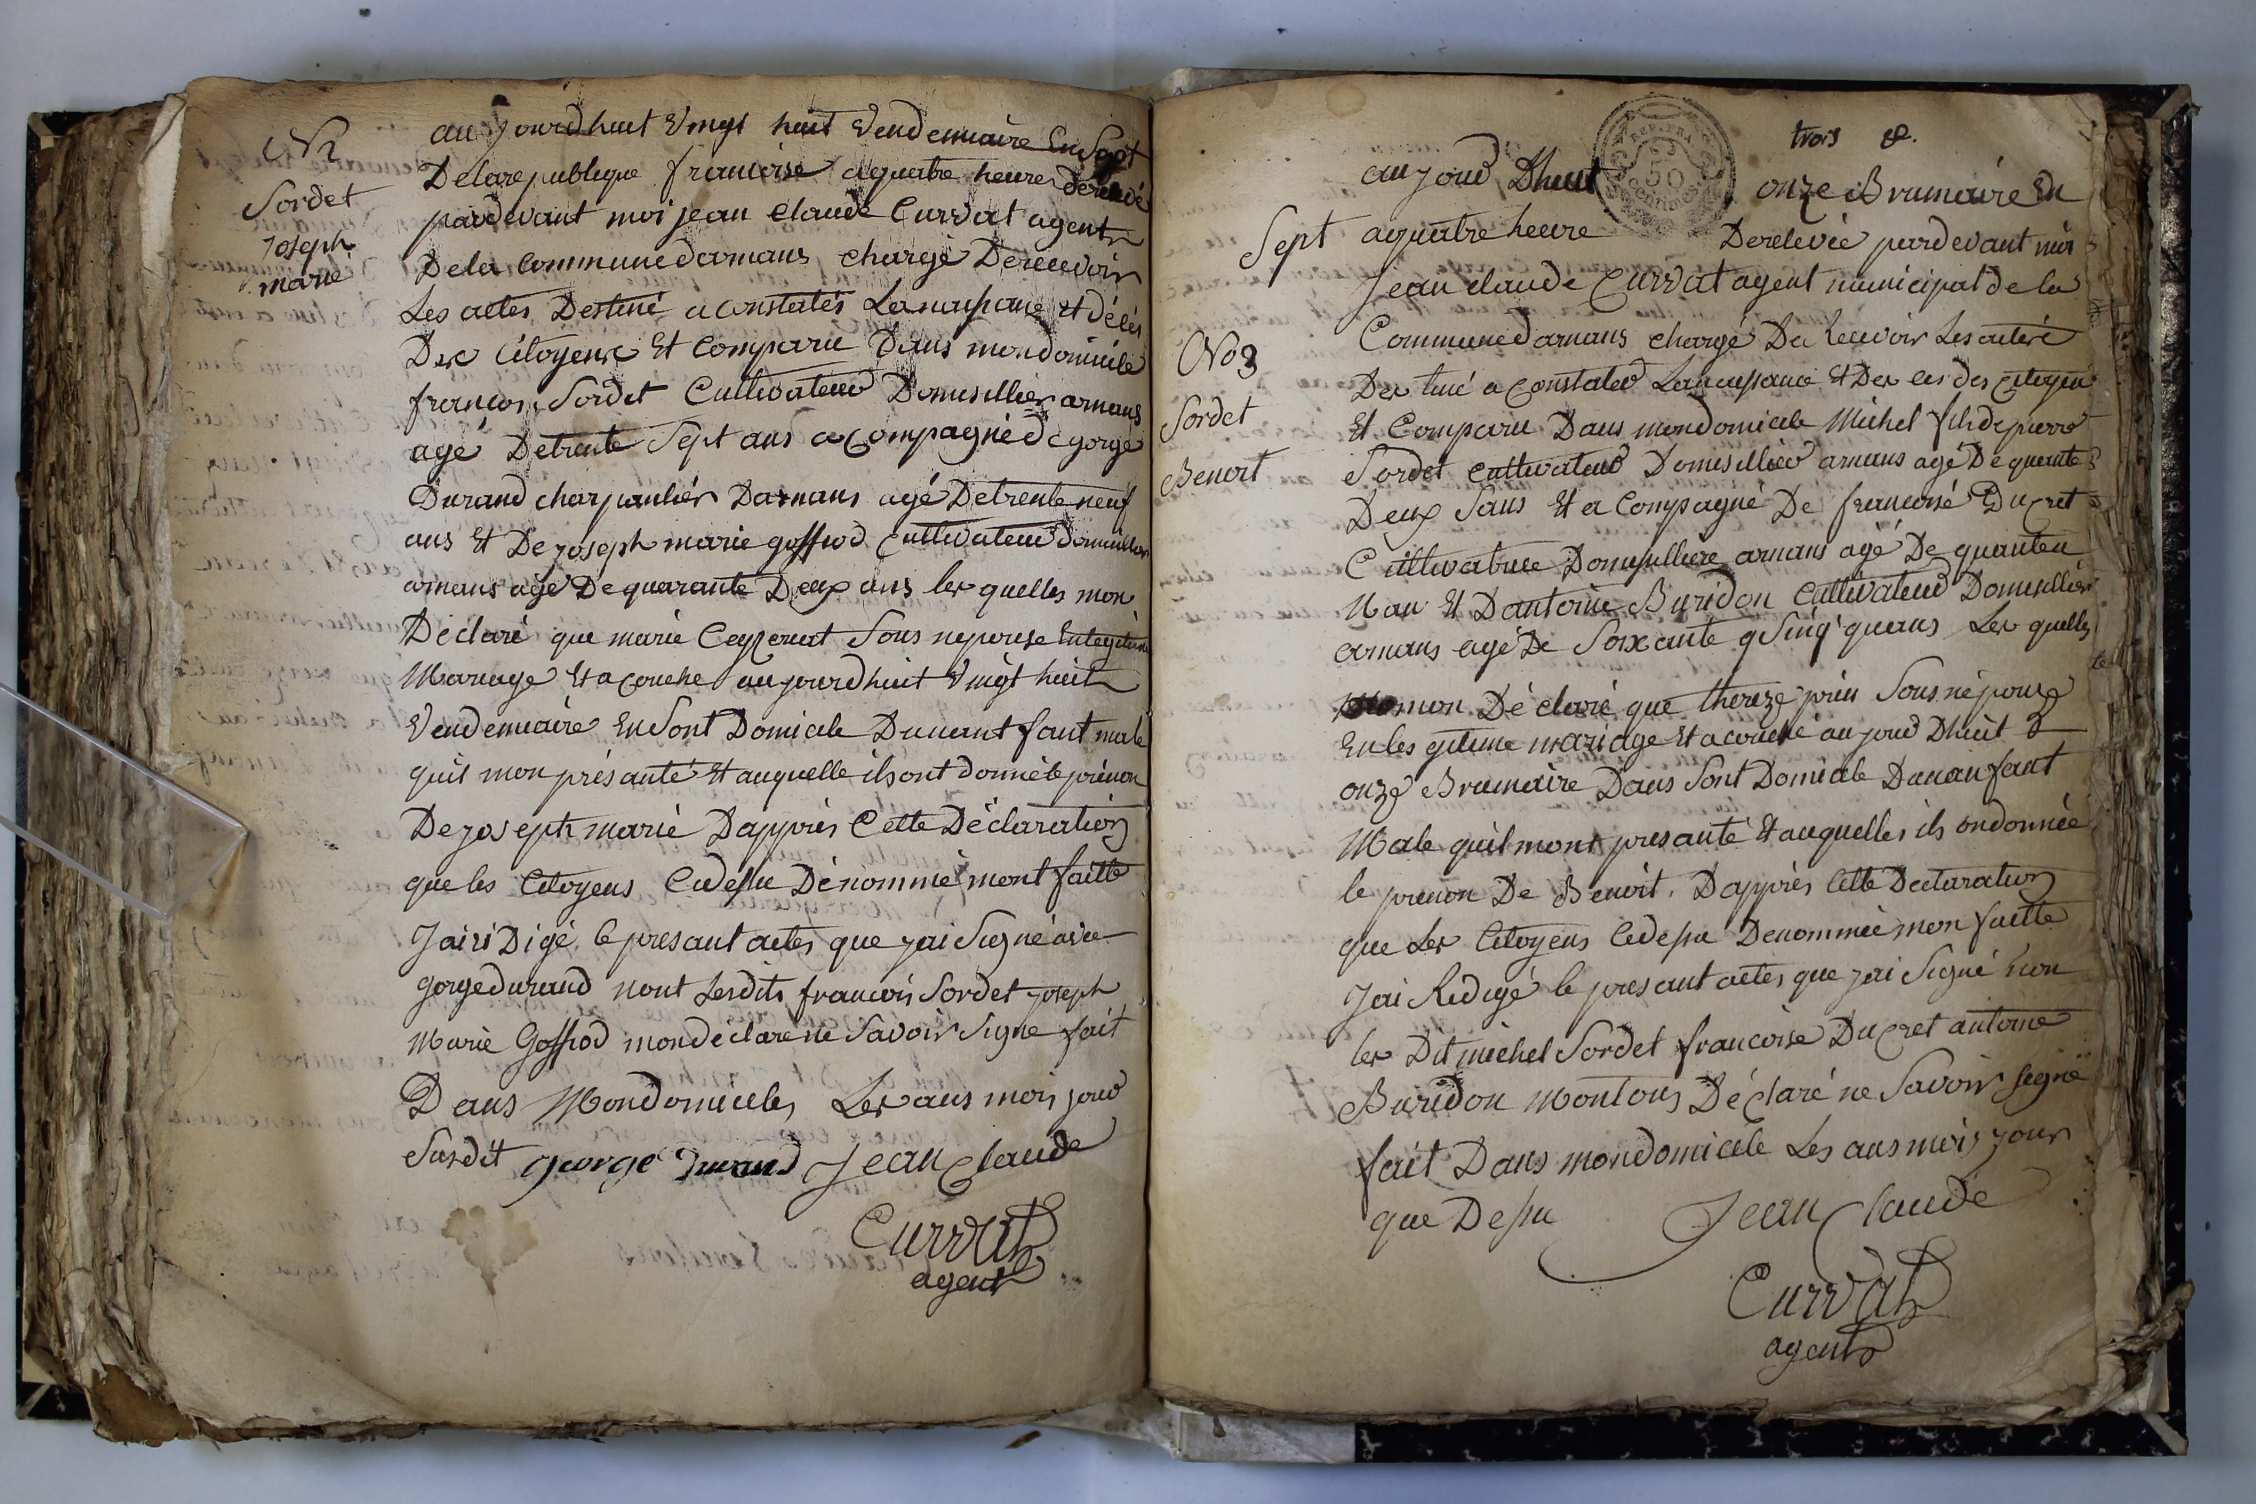 N2
Sordet
joseph
marie
aujourdhuit vingt huit vendemiaire En Sept
Delarepublique francoise aquatre heures derelevé
pardevant moi jean Claude Curvat agent
Dela Commune darnans chargé De recevoir
Les actes Destiné a constatés Lanaissance et décès
Des Citoyens Et Comparu Dans mondomicile
francois Sordet Cultivateur Domicillier arnans
agé De trente Sept ans acompagné de gorge
Durand charpantier Darnans agé De trente neuf
ans Et De joseph marie goffiod Cultivateur domicillier
arnans agé De quarante Deux ans les quelles mon
Déclaré que marie Ceyzeriat Sons nepouse En legitime
Mariage Et acouché aujourdhuit vingt huit
vendemiaire En Sont Domicile Dunant fant male
quil mon présanté Et auquelle ils ont donné le prénon
De joseph marie Dapprès Cette Déclaration
que les Citoyens Cidessu Dénommé mont faitte
Jai ridigé le presant actes que jai Signé avec
gorge durand nont Lesdits francois Sordet joseph
Marie Goffiod mon déclare ne Savoir Signe fait
Dans Mondomicile Les ans mois jour
Susdit george Durand Jean Claude
Curvat
agent
trois &.
REP. FRA.
50
CENTIMES
aujourd Dhuit onze Brumaire En
Sept aquatre heure Derelevée pardevant moi
Jean claude Curvat agent municipal de la
Commune darnans chargé De Recevoir Les acteré
Des tiné a constater Lanaissance Et Des ces des Citoyen
No 3
Sordet
Benoit
Et Comparu Dans mondomicile Michel fils de pierre
Sordet cultivateur Domisillier arnans agé De quarante
Deux Sans Et a Compagné De francoise Ducret
Cultivatrice Domisilliere arnans agé De quarante
Nan Et Dantoine Buridon Cultivateur Domisillier
arnans agé De Soixante q Sinq' quans Les quelles
mon Déclaré que thereze Sous népouze
En les gitime mariage Et acouché au jour Dhuit
onze Brumaire Dans Sont Domicile Dunan fant
Male quil mont presanté Et auquelles ils ondonnée
le prenon De Benoit. Dapprès Cette Declaration
que Les Citoyens Cidessu Denommée mon faitte
Jai Redigé le presant actes que jai Signé non
les Dit michel Sordet francoise Ducret antoine
Buridon Montous Déclaré ne Savoir Signé
fait Dans mondomicile Les ans mois jour
que Dessu Jean Claude
Curvat
agent